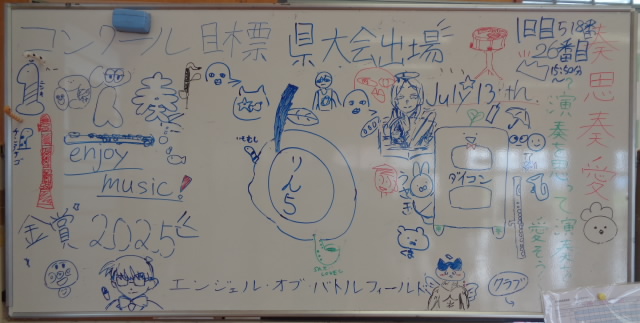 コンクール目標 県大会出場
1日目518番
26番目
15:50分
奏思奏愛
演奏を思って演奏を愛そう
July 13th
enjoy
music!
りんご
うさぎ
ダイコン
金賞 2025
エンジェル・オブ・バトルフィールド
クラブ